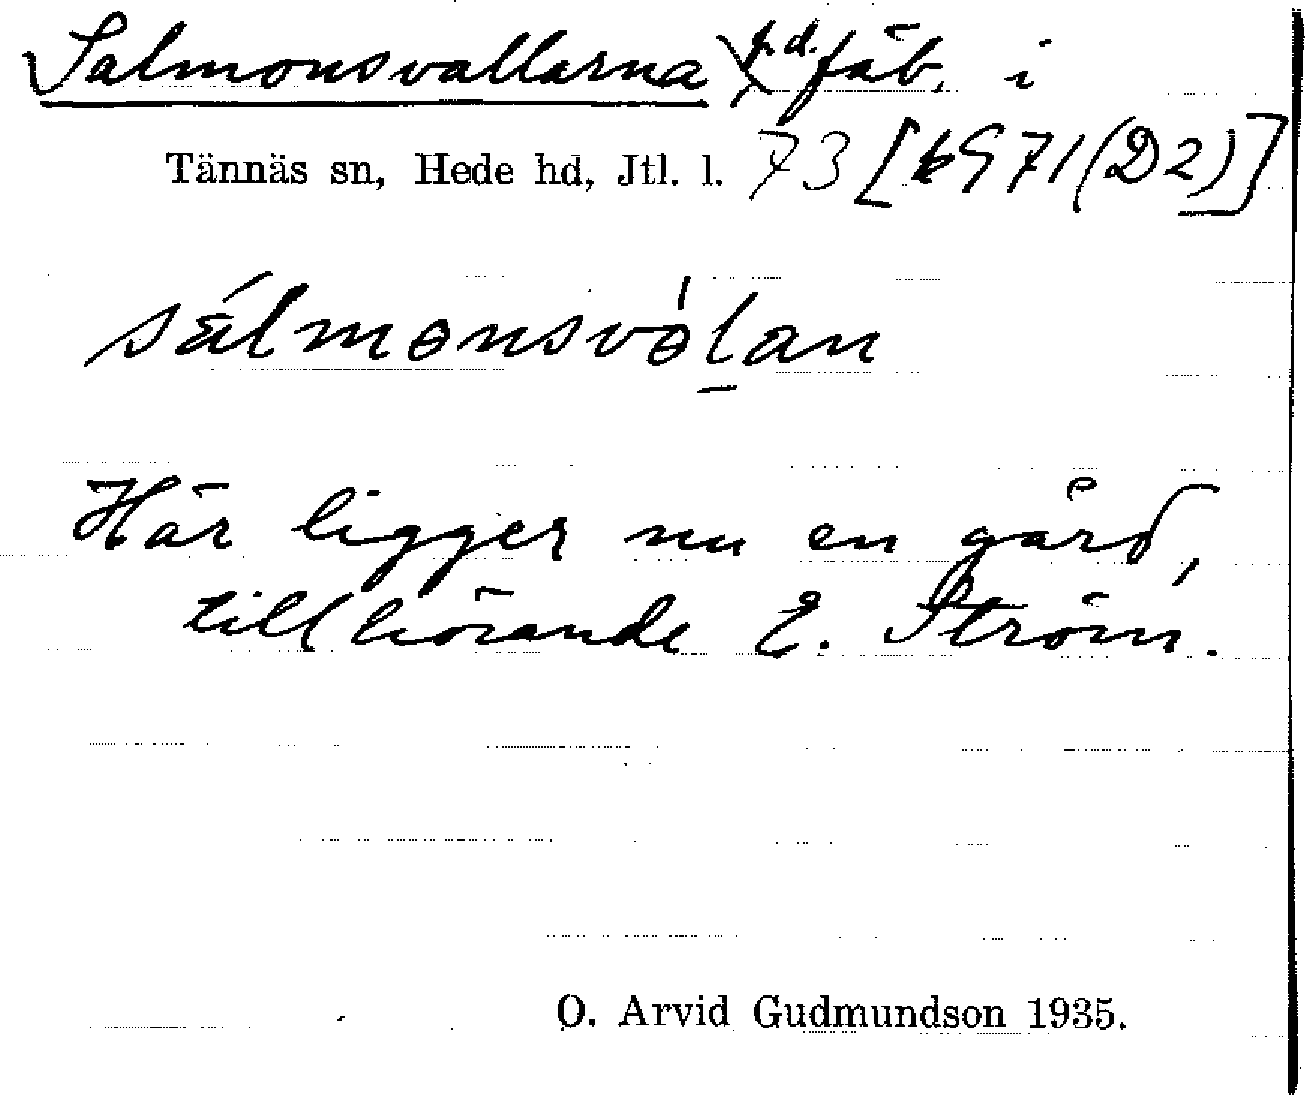 Salmonsvallarna f.d. fäb. i
Tännäs sn, Hede hd, Jtl. l. 73 [k971(D2)]
sálmɵnsvɵ́lan
Här ligger nu en gård,
tillhörande E. Ström.
O. Arvid Gudmundson 1935.